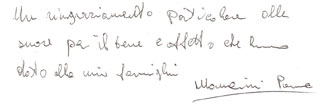 Un ringraziamento particolare alle
suore per il bene e affetto che hanno
dato alla mia famiglia
Mancini